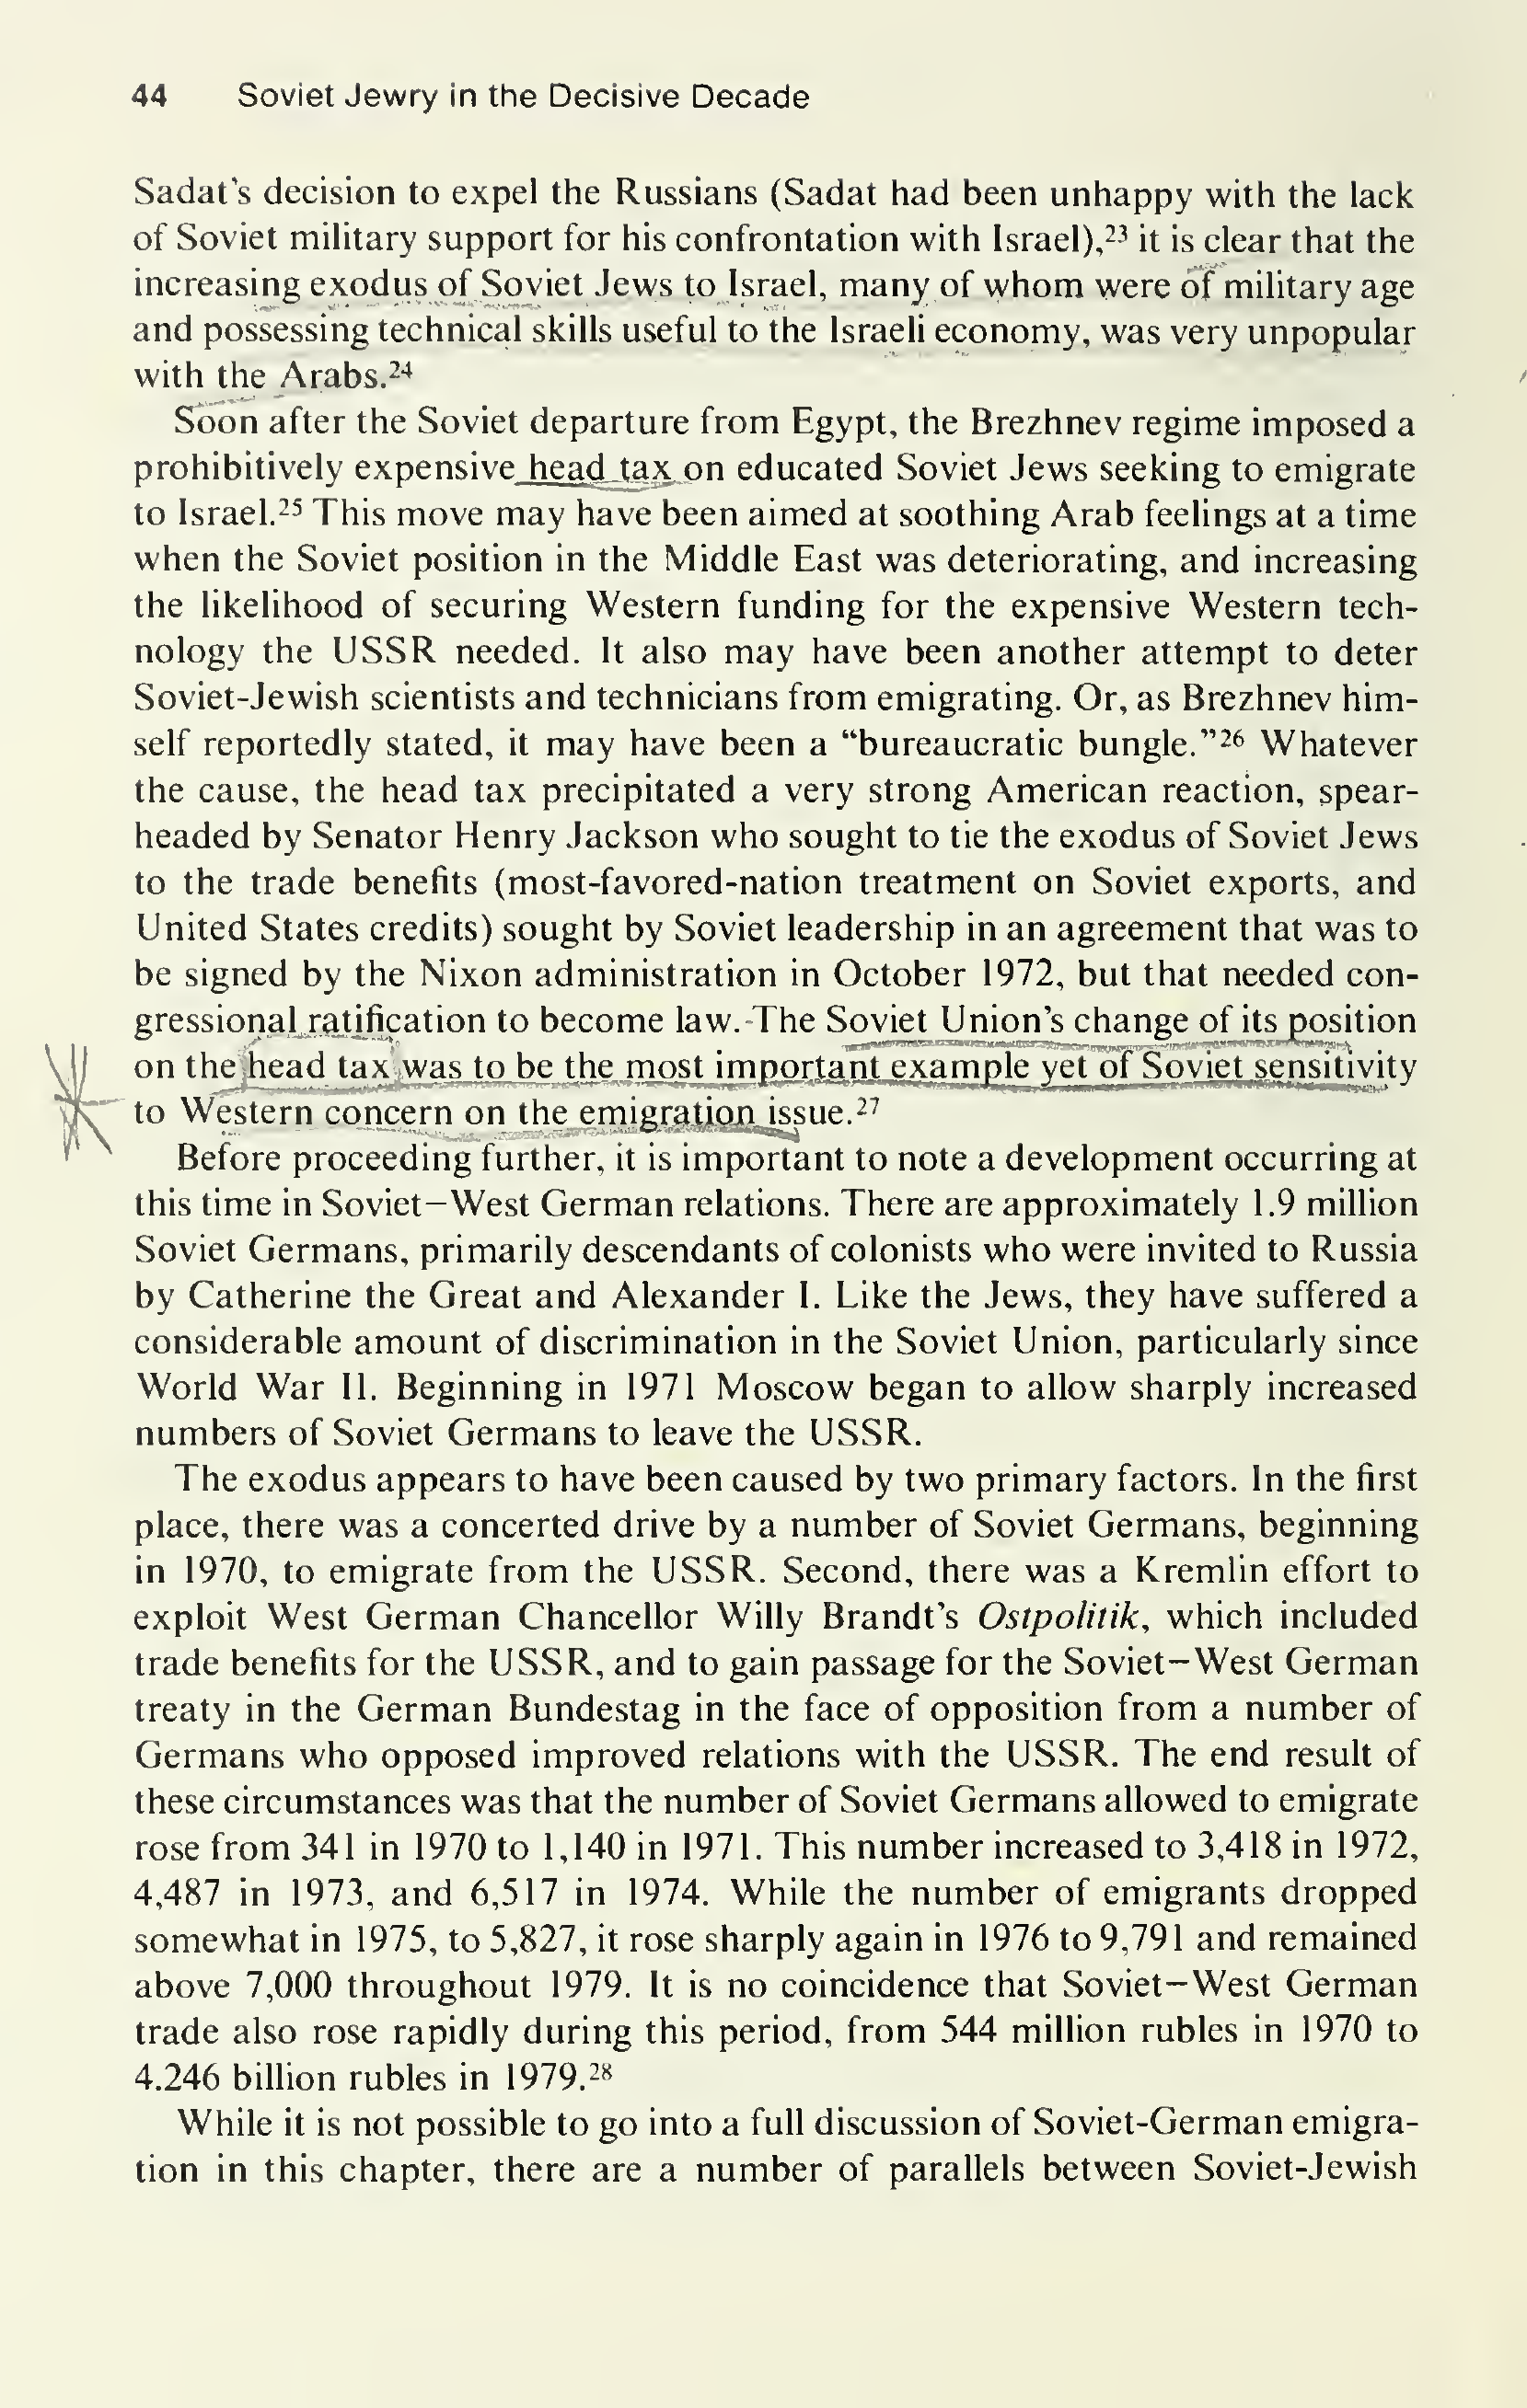 44 Soviet Jewry in the Decisive Decade
Sadat's decision to expel the Russians (Sadat had been unhappy with the lack
of Soviet military support for his confrontation with Israel),²³ it is clear that the
increasing exodus of Soviet Jews to Israel, many of whom were of military age
and possessing technical skills useful to the Israeli economy, was very unpopular
with the Arabs.²⁴
Soon after the Soviet departure from Egypt, the Brezhnev regime imposed a
prohibitively expensive head tax on educated Soviet Jews seeking to emigrate
to Israel.²⁵ This move may have been aimed at soothing Arab feelings at a time
when the Soviet position in the Middle East was deteriorating, and increasing
the likelihood of securing Western funding for the expensive Western tech-
nology the USSR needed. It also may have been another attempt to deter
Soviet-Jewish scientists and technicians from emigrating. Or, as Brezhnev him-
self reportedly stated, it may have been a “bureaucratic bungle.”²⁶ Whatever
the cause, the head tax precipitated a very strong American reaction, spear-
headed by Senator Henry Jackson who sought to tie the exodus of Soviet Jews
to the trade benefits (most-favored-nation treatment on Soviet exports, and
United States credits) sought by Soviet leadership in an agreement that was to
be signed by the Nixon administration in October 1972, but that needed con-
gressional ratification to become law. The Soviet Union's change of its position
on the head tax was to be the most important example yet of Soviet sensitivity
to Western concern on the emigration issue.²⁷
Before proceeding further, it is important to note a development occurring at
this time in Soviet—West German relations. There are approximately 1.9 million
Soviet Germans, primarily descendants of colonists who were invited to Russia
by Catherine the Great and Alexander I. Like the Jews, they have suffered a
considerable amount of discrimination in the Soviet Union, particularly since
World War II. Beginning in 1971 Moscow began to allow sharply increased
numbers of Soviet Germans to leave the USSR.
The exodus appears to have been caused by two primary factors. In the first
place, there was a concerted drive by a number of Soviet Germans, beginning
in 1970, to emigrate from the USSR. Second, there was a Kremlin effort to
exploit West German Chancellor Willy Brandt's Ostpolitik, which included
trade benefits for the USSR, and to gain passage for the Soviet—West German
treaty in the German Bundestag in the face of opposition from a number of
Germans who opposed improved relations with the USSR. The end result of
these circumstances was that the number of Soviet Germans allowed to emigrate
rose from 341 in 1970 to 1,140 in 1971. This number increased to 3,418 in 1972,
4,487 in 1973, and 6,517 in 1974. While the number of emigrants dropped
somewhat in 1975, to 5,827, it rose sharply again in 1976 to 9,791 and remained
above 7,000 throughout 1979. It is no coincidence that Soviet—West German
trade also rose rapidly during this period, from 544 million rubles in 1970 to
4.246 billion rubles in 1979.²⁸
While it is not possible to go into a full discussion of Soviet-German emigra-
tion in this chapter, there are a number of parallels between Soviet-Jewish